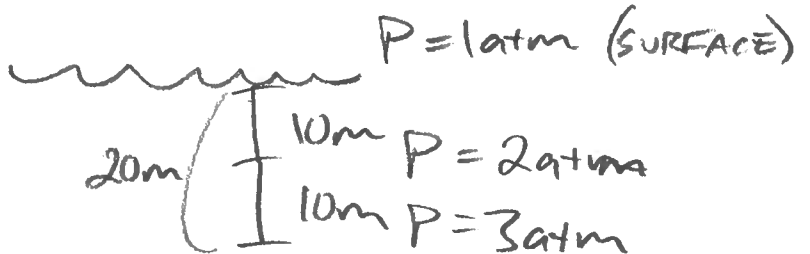 P = 1atm (SURFACE)
10m P = 2atm
20m
10m P = 3atm